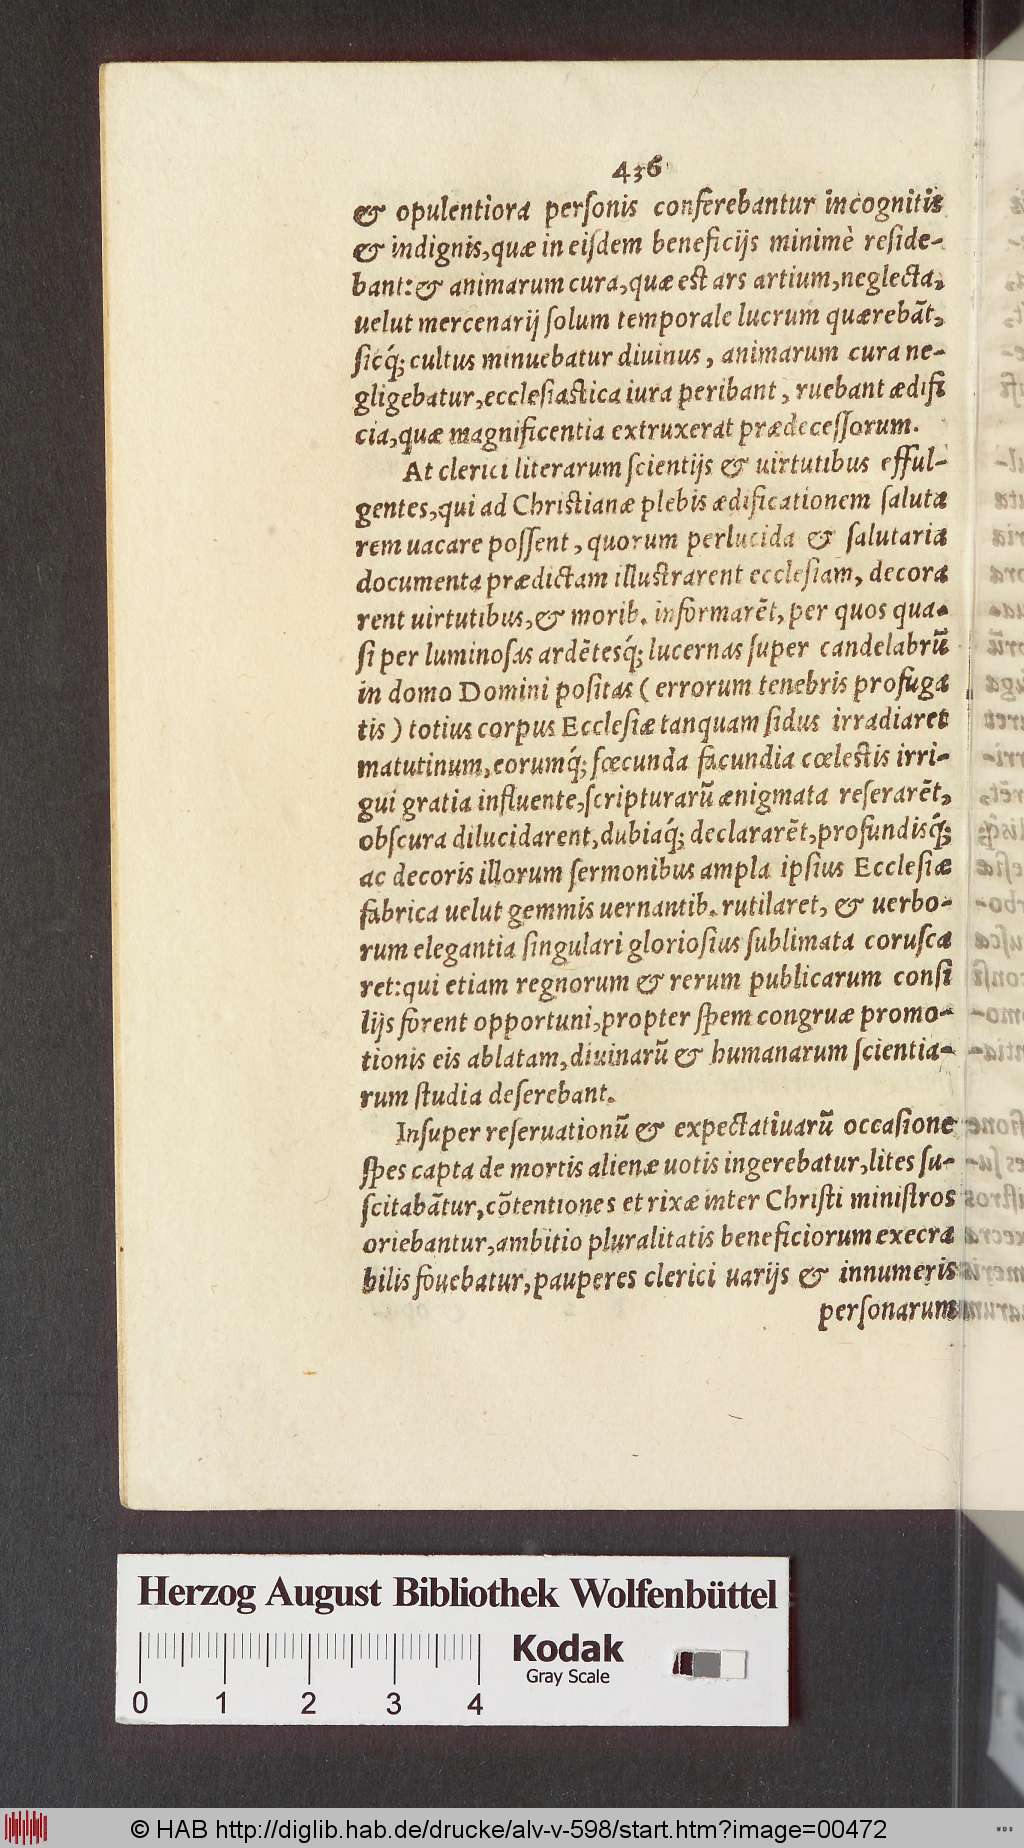 436
& opulentiora perſonis conferebantur incognitis
& indignis, quæ in eiſdem beneficijs minimè reſide-
bant: & animarum cura, quæ est ars artium, neglecta,
uelut mercenarij ſolum temporale lucrum quærebāt,
ſicq́; cultus minuebatur diuinus, animarum cura ne-
gligebatur, eccleſiastica iura peribant, ruebant ædifi
cia, quæ magnificentia extruxerat prædeceſſorum.
At clerici literarum ſcientijs & uirtutibus efful-
gentes, qui ad Christianæ plebis ædificationem ſaluta
rem uacare poſſent, quorum perlucida & ſalutaria
documenta prædictam illustrarent eccleſiam, decora
rent uirtutibus, & morib. informarēt, per quos qua-
ſi per luminoſas ardētesq́; lucernas ſuper candelabrū
in domo Domini poſitas (errorum tenebris profuga
tis) totius corpus Eccleſiæ tanquam ſidus irradiaret
matutinum, eorumq́; fœcunda facundia cœlestis irri-
gui gratia influente, ſcripturarū ænigmata reſerarēt,
obſcura dilucidarent, dubiaq́; declararēt, profundisq́;
ac decoris illorum ſermonibus ampla ipſius Eccleſiæ
fabrica uelut gemmis uernantib. rutilaret, & uerbo-
rum elegantia ſingulari glorioſius ſublimata coruſca
ret: qui etiam regnorum & rerum publicarum conſi
lijs forent opportuni, propter ſpem congruæ promo-
tionis eis ablatam, diuinarū & humanarum ſcientia-
rum ſtudia deſerebant.
Inſuper reſeruationū & expectatiuarū occaſione
ſpes capta de mortis alienæ uotis ingerebatur, lites ſu-
ſcitabātur, cōtentiones et rixæ inter Chriſti miniſtros
oriebantur, ambitio pluralitatis beneficiorum execra
bilis fouebatur, pauperes clerici uarijs & innumeris
perſonarum
Herzog August Bibliothek Wolfenbüttel
Kodak
Gray Scale
0 1 2 3 4
© HAB http://diglib.hab.de/drucke/alv-v-598/start.htm?image=00472